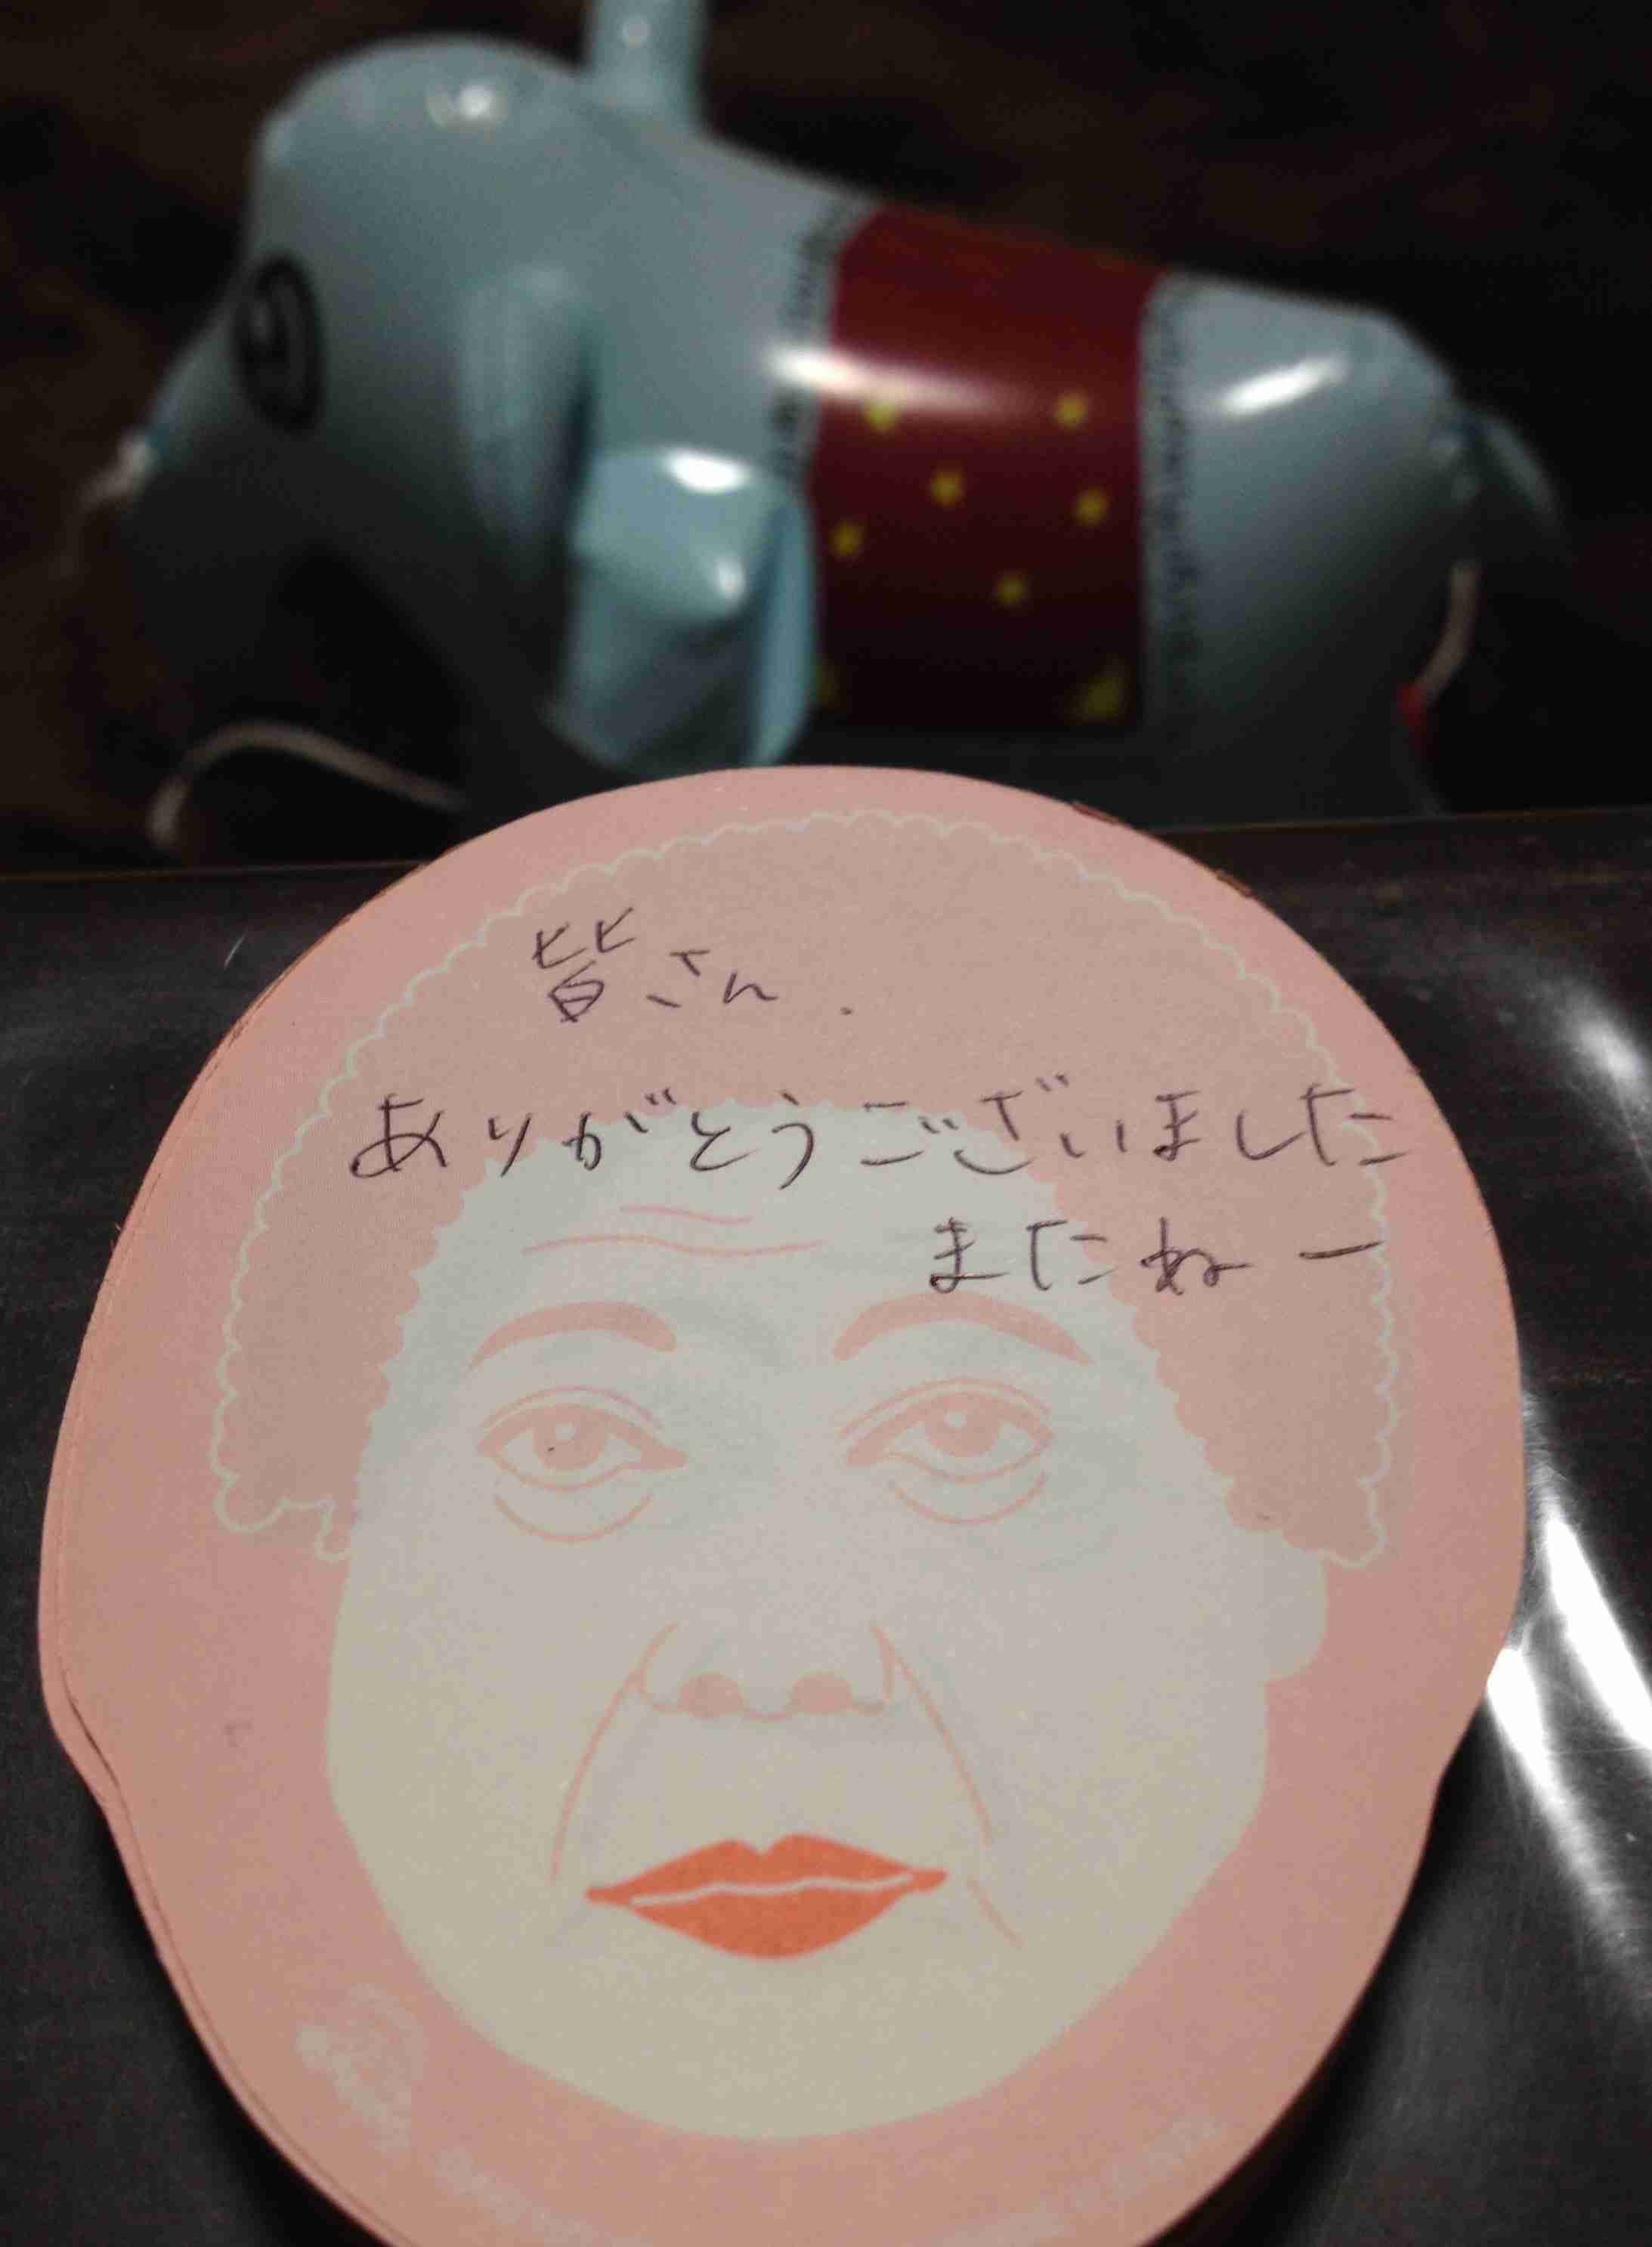 皆さん.
ありがとうございました
またねー